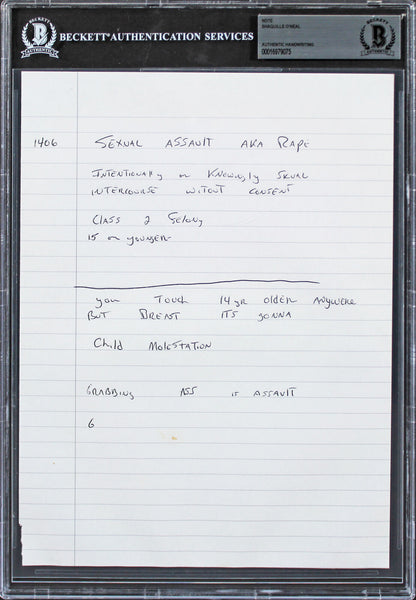 BECKETT AUTHENTICATION SERVICES
NOTE
SHAQUILLE O'NEAL
AUTHENTIC HANDWRITING
00016979075
1406 SEXUAL ASSAULT AKA RAPE
INTENTIONARY or KNOWINGLY SXUAL
INTERCOURSE WITOUT CONSENT
CLASS 2 Felony
15 or younger
you Touch 14 yr older Anywere
BUT BREAST ITS gonna
Child MOLESTATION
GRABBING ASS is ASSAULT
6